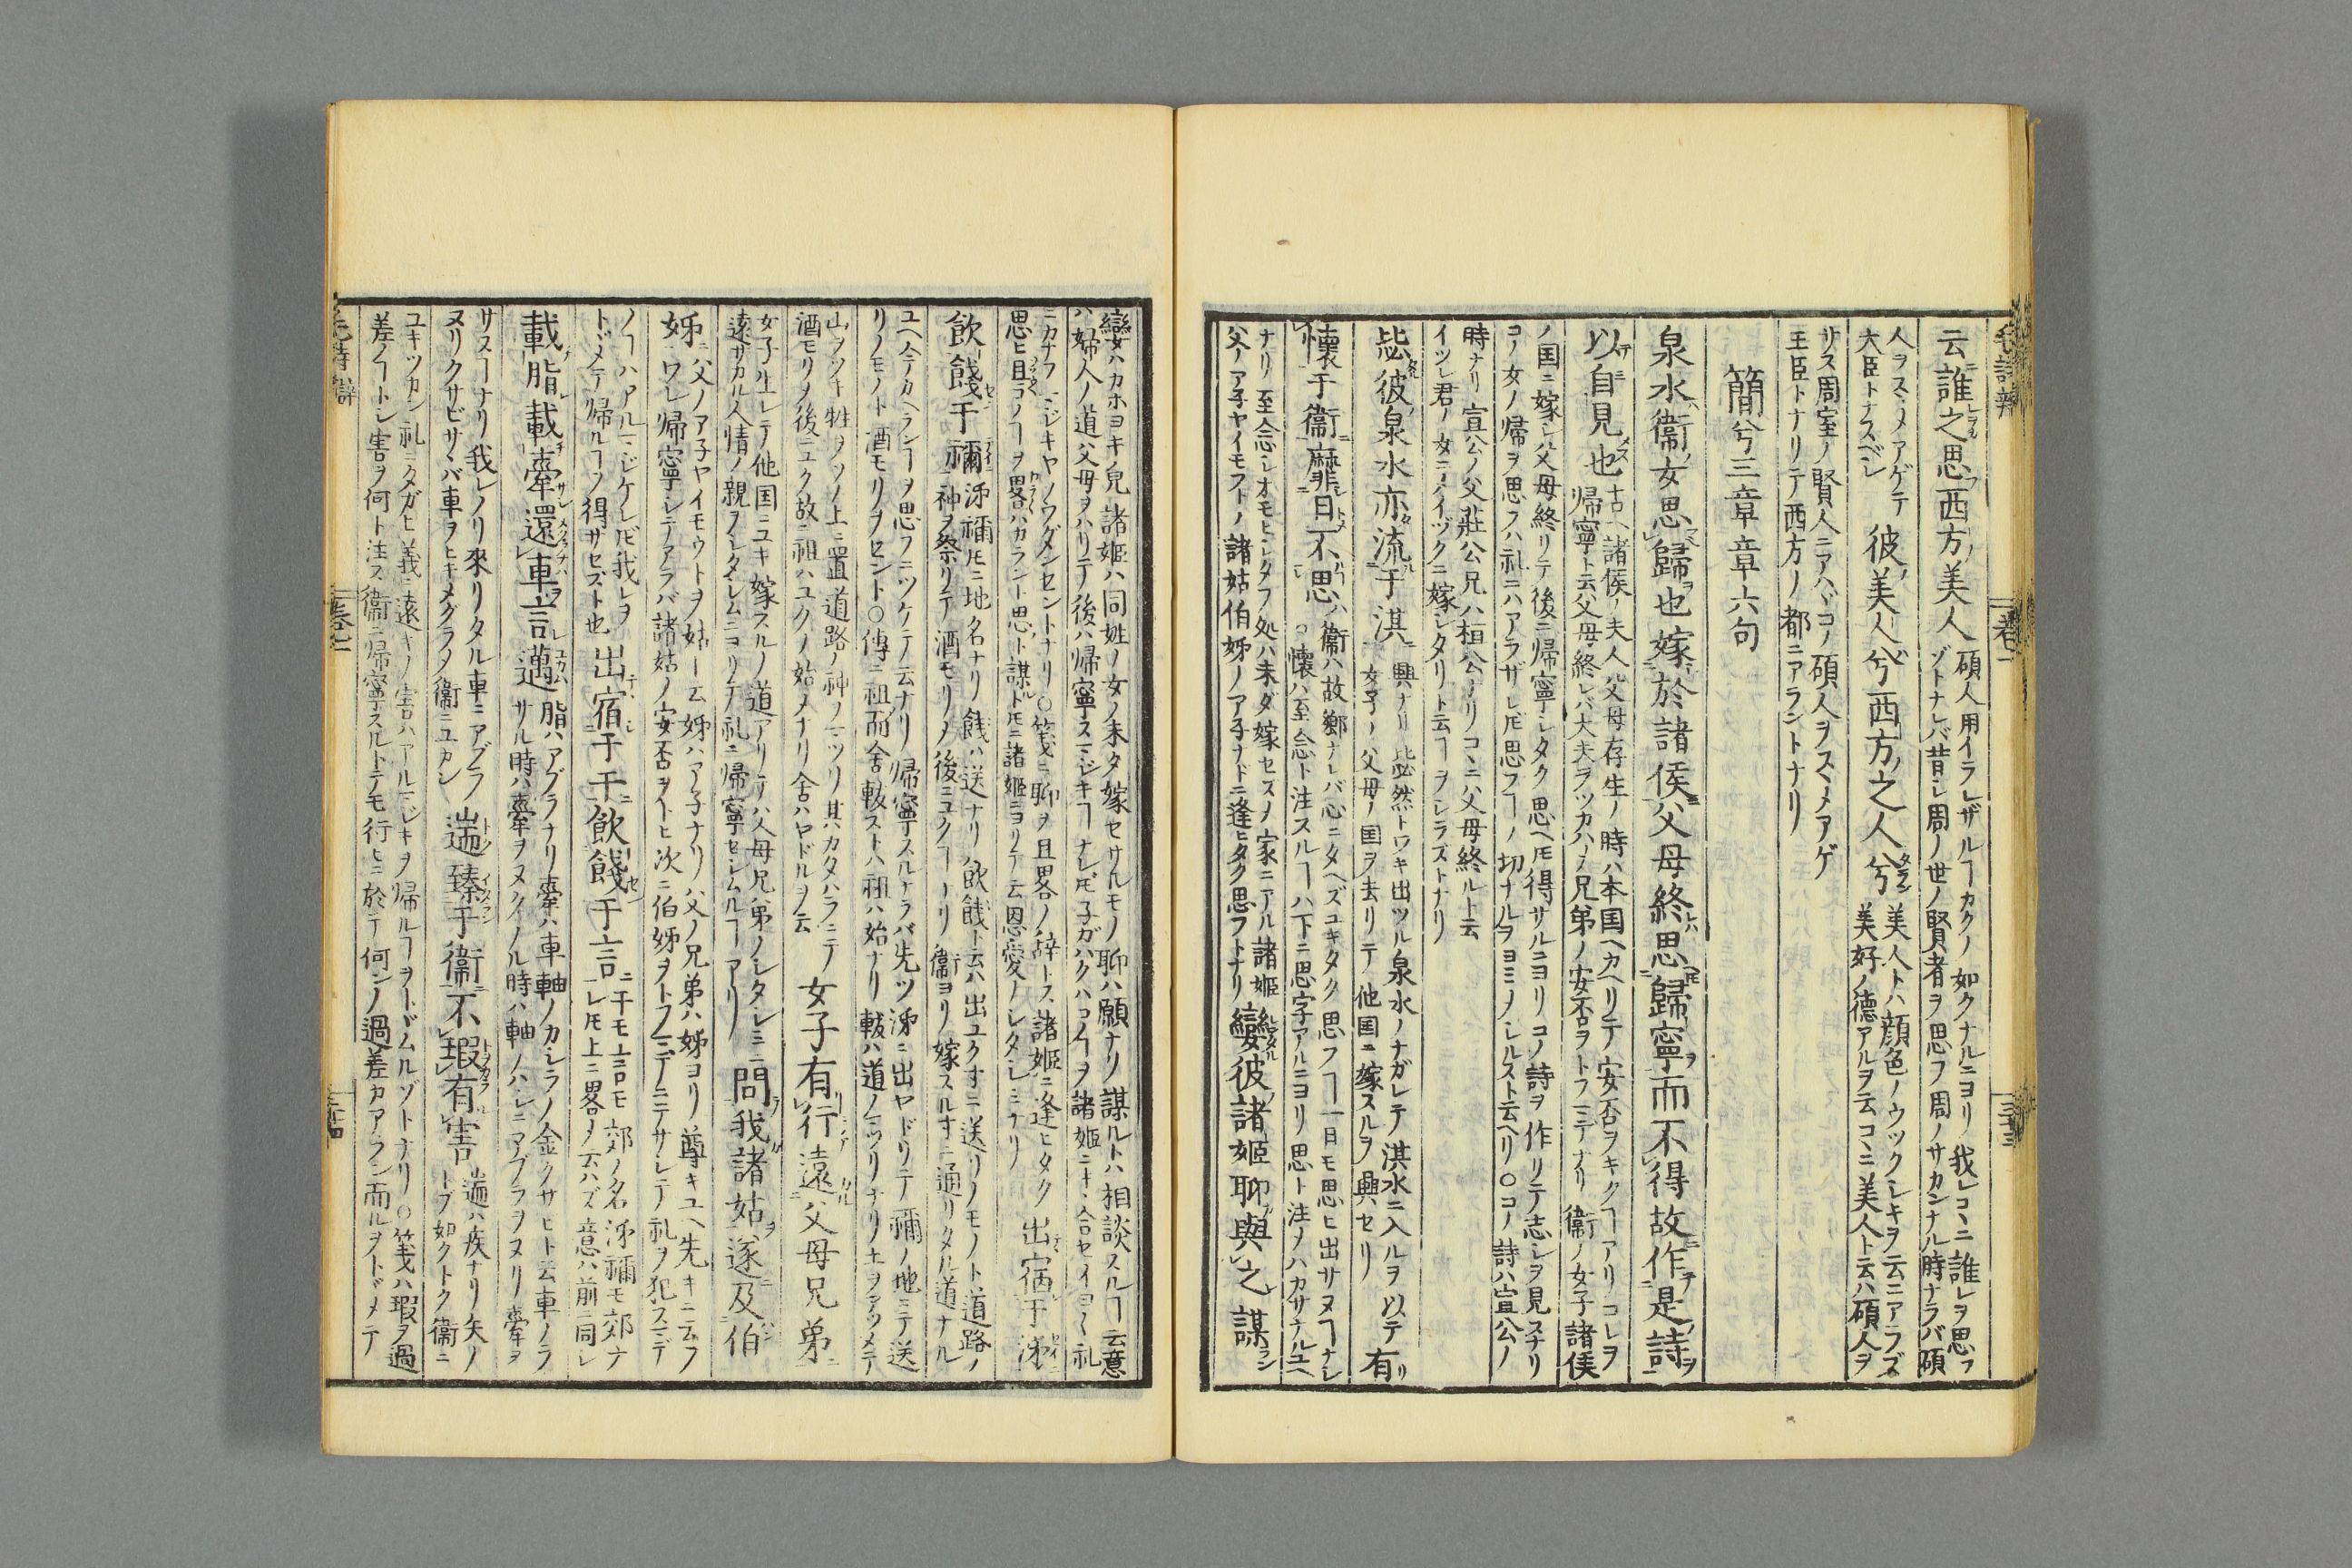 毛詩辨
卷一
三十三
云誰之思西方美人
碩人用イラレザルヿカクノ如クナルニヨリ我レコヽニ誰レヲ思フ
ゾトナレバ昔シ周ノ世ノ賢者ヲ思フ周ノサカンナル時ナラバ碩
人ヲスヽメアゲテ
大臣トナスベシ
彼美人兮西方之人兮
美人トハ顔色ノウツクシキヲ云ニアラズ
美好ノ德アルヲ云コヽニ美人ト云ハ碩人ヲ
サス周室ノ賢人ニアハヾコノ碩人ヲスヽメアゲ
王臣トナリテ西方ノ都ニアラントナリ
簡兮三章章六句
泉水衞女思歸也嫁於諸侯父母終思歸寧而不得故作是詩
以自見也
古ヘ諸侯ノ夫人父母存生ノ時ハ本国ヘカヘリテ安否ヲキクヿアリコレヲ
帰寧ト云父母終レバ大夫ヲツカハシ兄弟ノ安否ヲトフミデナリ衞ノ女子諸侯
ノ国ニ嫁シ父母終リテ後ニ帰寧シタク思ヘ𪜈得サルニヨリコノ詩ヲ作リテ志シヲ見スナリ
コノ女ノ帰ヲ思フハ礼ニハアラザレ𪜈思フヿノ切ナルヲヨミシノシルスト云ヘリ○コノ詩ハ宣公ノ
時ナリ宣公ノ父莊公兄ハ桓公ナリコヽニ父母終ルト云
イツレ君ノ女ニノイヅクニ嫁シタリト云ヿヲシラズトナリ
毖彼泉水亦流于淇
興ナリ毖然トワキ出ツル泉水ノナガレテ淇水ニ入ルヲ以テ
女子ノ父母ノ国ヲ去リテ他国ニ嫁スルヲ興セリ
有
懷于衞靡日不思
衞ハ故鄉ナレバ心ニタヘズユキタク思フヿ一日モ思ヒ出サヌヿナシ
○懷ハ至念ト注スルヿハ下ニ思字アルニヨリ思ト注シハカサナルユヘ
ナリ至念シオモヒシタフ処ハ未ダ嫁セズノ家ニアル諸姬
父ノアネヤイモフトノ諸姑伯姊ノアネナドニ逢ヒタク思フトナリ
孌彼諸姬聊與之謀
孌ハカホヨキ皃諸姬ハ同姓ノ女ノ未タ嫁セサルモノ聊ハ願ナリ謀ルトハ相談スルヿ云意
ハ婦人ノ道父母ヲハリテ後ハ帰寧スマジキヿナレ𪜈子ガハクハコノヿヲ諸姬ニキヽ合セイヨ〱礼
ニカナフマジキヤノワダンセントナリ○箋ニ聊ヲ且畧ノ辞トス諸姬ニ逢ヒタク
思ヒ且コノヿヲ畧ハカラント思ト謀ト𪜈ニ諸姬ニヨリテ云恩愛ノシタシミナリ
出宿于泲
飮餞于禰
泲禰𪜈ニ地名ナリ餞ハ送ナリ飲餞ト云ハ出ユクオニ送リノモノト道路ノ
神ヲ祭リテ酒モリノ後ニユクヿナリ衞ヨリ嫁スルオニ通リタル道ナル
ユヘ今テカヘランヿヲ思フニツケテ云ナリ帰寧スルナラバ先ツ泲ニ出ヤドリテ禰ノ地ニテ送
リノモノト酒モリヲセント○傳ニ祖而舍軷ストハ祖ハ始ナリ軷ハ道ノマツリナリ土ヲアツメテ
山ヲツキ牲ヲソノ上ニ置道路ノ神ノマツリ其カタハラニテ
酒モリヲ後ニユク故ニ祖ハユクノ始メナリ舍ハヤドルヲ云
女子有行遠父母兄弟
女子生レテ他国ニユキ嫁スルノ道アリテハ父母兄弟ノシタシミニ
遠サカル人情ノ親ヲシタシムニヨリテ礼ニ帰寧セシムルヿアリ
問我諸姑遂及伯
姊
父ノアネヤイモウトヲ姑ト云姊ハアネナリ父ノ兄弟ハ姊ヨリ尊キユヘ先キニ云フ
ワレ帰寧シテアラバ諸姑ノ安否ヲトヒ次ニ伯姊ヲトフミデニテサレテ礼ヲ犯スミデ
ノヿハアルマジケレ𪜈我レヲ
トドメテ帰ルヿヲ得サセズト也
出宿于干飮餞于言
干モ言モ郊ノ名泲禰モ郊ナ
レ𪜈上ニ畧シ云ハズ意ハ前ニ同レ
載脂載舝還車言邁
脂ハアブラナリ舝ハ車軸ノカシラノ金クサヒト云車ノラ
サル時ハ舝ヲヌクノル時ハ軸ノハシニアブラヲヌリ舝ヲ
サスヿナリ我レノリ來リタル車ニアブラ
ヌリクサビサヽバ車ヲヒキメグラシ衞ニユカン
遄臻于衞不瑕有害
遄ハ疾ナリ矢ノ
トブ如クトク衞ニ
ユキツカン礼ニタガヒ義ニ遠キノ害ハアルマジキヲ帰ルヿヲトヾムルゾトナリ○箋ハ瑕ヲ過
差ノヿトシ害ヲ何ト注ス衞ニ帰寧スルトテモ行ヒニ於テ何ンノ過差カアラン而ルヲトドメテ
毛詩辨
卷一
三十四